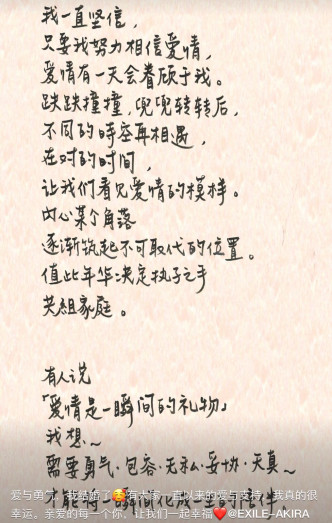 我一直坚信，
只要我努力相信爱情，
爱情有一天会眷顾于我。
跌跌撞撞，兜兜转转后，
不同的时空再相遇，
在对的时间，
让我们看见爱情的模样。
内心某个角落
逐渐筑起不可取代的位置。
值此年华决定执子之手
共组家庭。
有人说
「爱情是一瞬间的礼物」
我想～
需要勇气·包容·无私·妥协·天真～
爱与勇气，我结婚了🥰有大家一直以来的爱与支持，我真的很
幸运。亲爱的每一个你，让我们一起幸福❤️@EXILE-AKIRA